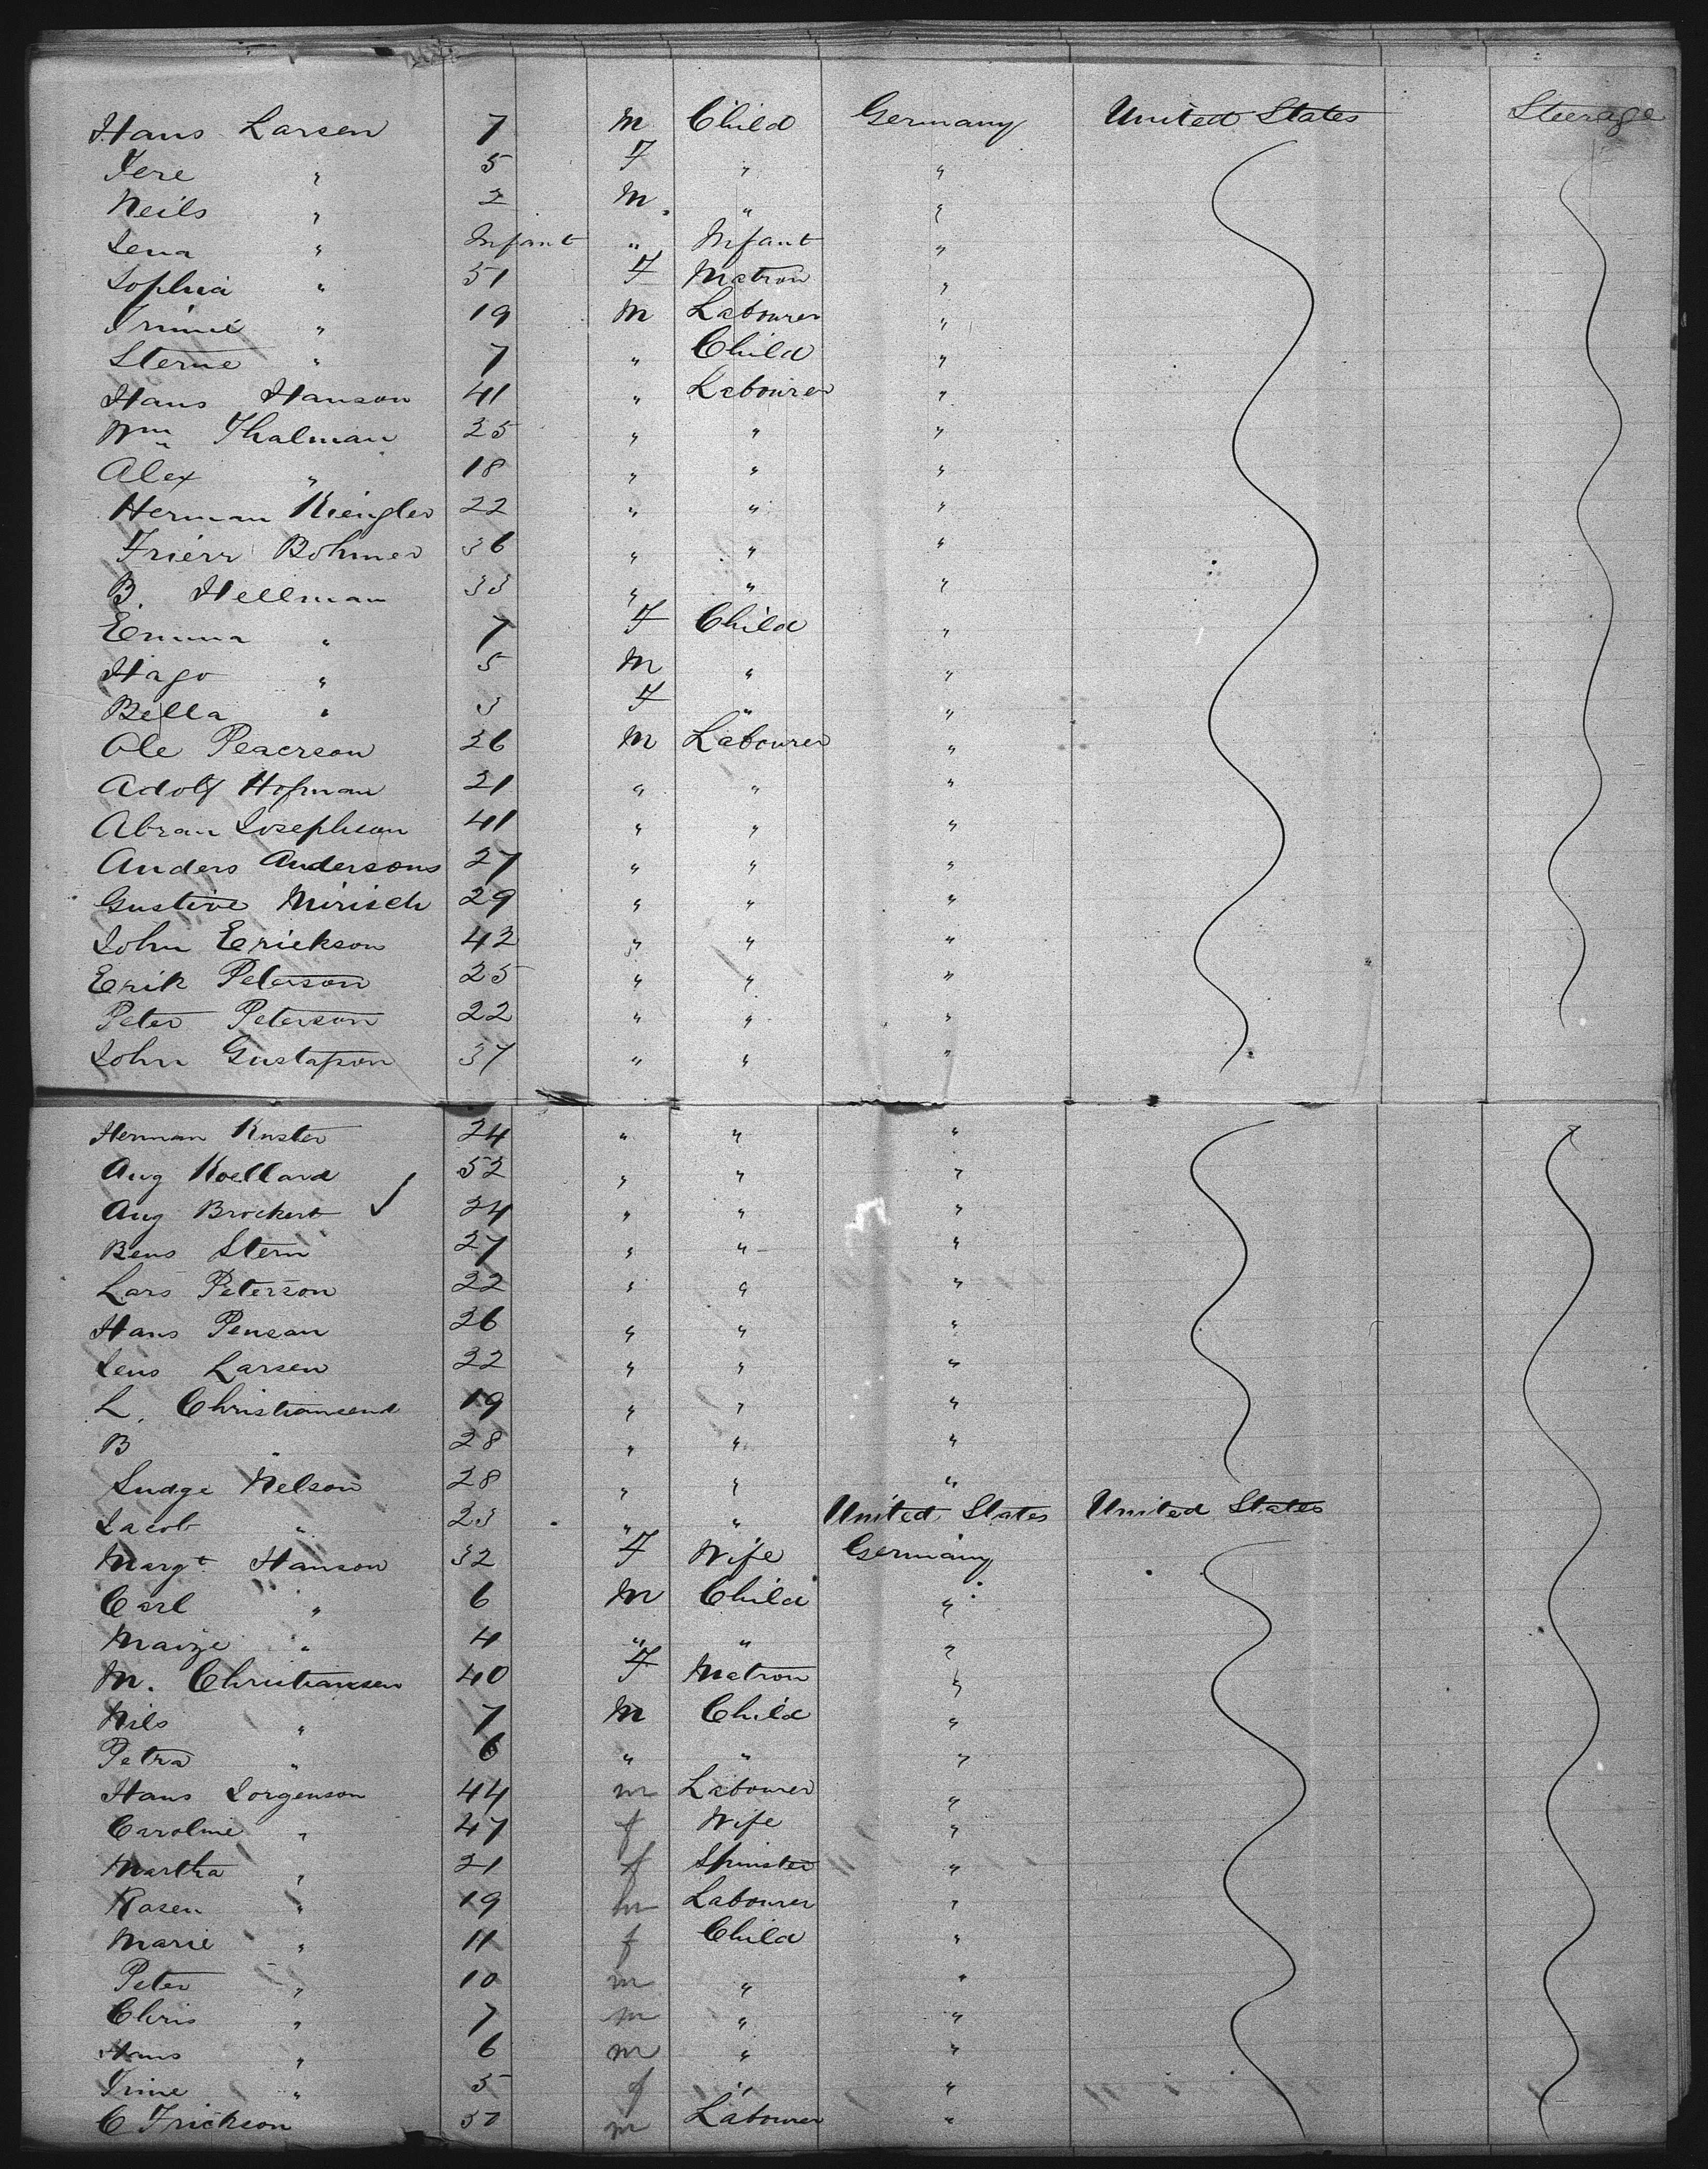 Hans Larsen 7 M Child Germany United States Steerage
Jere " 5 F " "
Neils " 2 M. " "
Lena " Infant " Infant "
Sophia " 51 F Matron "
" 19 M Labourer "
Sterne " 7 " Child "
Hans Hanson 41 " Labourer "
Wm Thalman 25 " " "
Alex " 18 " " "
Herman Kiengler 22 " " "
Frierr Bohmer 36 " " "
B. Hellman 33 " " "
Emma " 7 F Child "
Hago " 5 M " "
Bella " 3 F " "
Ole Peaerson 26 M Labourer "
Adolf Hofman 21 " " "
Abran Josephson 41 " " "
Anders Andersons 27 " " "
Gustive Mirisch 29 " " "
John Erickson 42 " " "
Erik Peterson 25 " " "
Peter Peterson 22 " " "
John Gustafson 37 " " "
Herman Kuster 24 " " "
Aug Koellard 52 " " "
Aug Brockert ✓ 24 " " "
Bens Stern 27 " " "
Lars Peterson 22 " " "
Hans Pensan 26 " " "
Jens Larsen 22 " " "
L. Christiansend 19 " " "
B " 28 " " "
Judge Nelson 28 " " "
Jacob " 23 " " United States United States
Margt Hanson 32 F Wife Germany
Carl " 6 M Child "
Maize " 4 " " "
M. Christiansen 40 F Matron "
Nils " 7 M Child "
Petra " 6 " " "
Hans Jorgenson 44 m Labourer "
Caroline " 47 f Wife "
Martha " 21 f Spinster "
Rasen " 19 m Labourer "
Marie " 11 f Child "
Peter " 10 m " "
Chris " 7 m " "
Hans " 6 m " "
Trine " 5 f " "
C Frickson m Labourer "